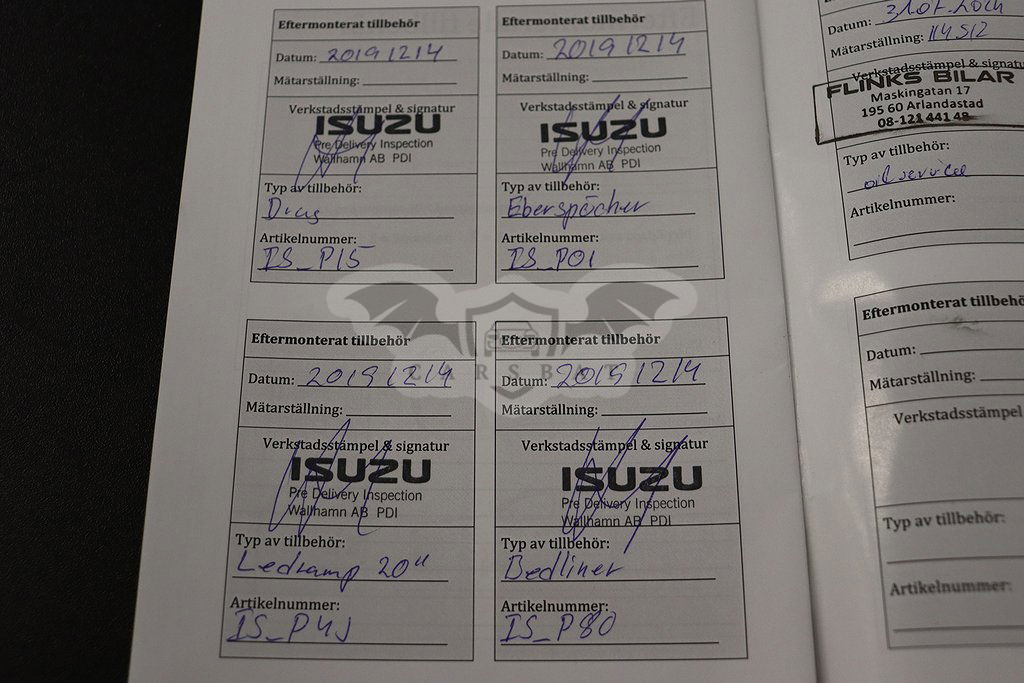 Eftermonterat tillbehör
Datum: 2019 12 14
Mätarställning:
Verkstadsstämpel & signatur
ISUZU
Pre Delivery Inspection
Wallhamn AB PDI
Typ av tillbehör:
Drag
Artikelnummer:
IS_P15
Eftermonterat tillbehör
Datum: 2019 12 14
Mätarställning:
Verkstadsstämpel & signatur
ISUZU
Pre Delivery Inspection
Wallhamn AB PDI
Typ av tillbehör:
Eberspächer
Artikelnummer:
IS_P01
Eftermonterat tillbehör
Datum: 2019 12 14
Mätarställning:
Verkstadsstämpel & signatur
ISUZU
Pre Delivery Inspection
Wallhamn AB PDI
Typ av tillbehör:
Ledramp 20"
Artikelnummer:
Eftermonterat tillbehör
Datum: 2019 12 14
Mätarställning:
Verkstadsstämpel & signatur
ISUZU
Pre Delivery Inspection
Wallhamn AB PDI
Typ av tillbehör:
Bedliner
Artikelnummer:
IS_P80
Datum:
Mätarställning: 114512
Verkstadsstämpel & signatu
FLINKS BILAR
Maskingatan 17
195 60 Arlandastad
08-121 441 48
Typ av tillbehör:
oil service
Artikelnummer:
Eftermonterat tillbehö
Datum:
Mätarställning:
Verkstadsstämpel
Typ av tillbehör:
Artikelnummer: